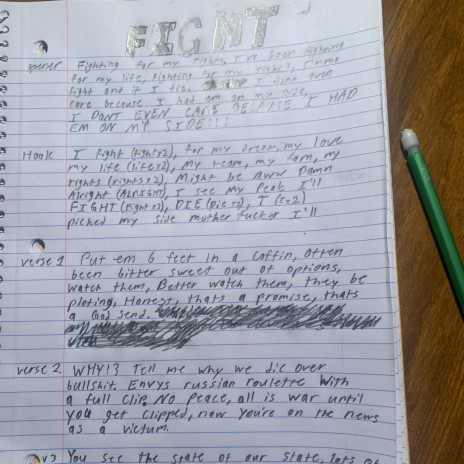 FIGHT
opener Fighting for my rights, I've been fighting
for my life, fighting for my rights, I'mma
fight and if I die, I dont even
care because I had em on my side,
I DONT EVEN CARE BECAUSE I HAD
EM ON MY SIDE!!!
Hook I fight (fightx2), for my dream, my love
my life (lifex2), my team, my fam, my
rights (rightsx2), Might be Aww Damn
Alright (ALRIGHT) I see my Peak I'll
FIGHT (Fight x2), DIE (Die x2), I (Ix2)
picked my side mother fucker I'll
verse 1 Put em 6 feet in a coffin, often
been bitter sweet out of options,
watch them, Better watch them, they be
ploting, Honest, thats a promise, thats
a God send.
verse 2 WHY!? Tell me why we die over
bullshit. Envys russian roulette with
a full clip, NO peace, all is war until
you get clipped, now you're on the news
as a victum.
v3 You see the state of our state, lots of